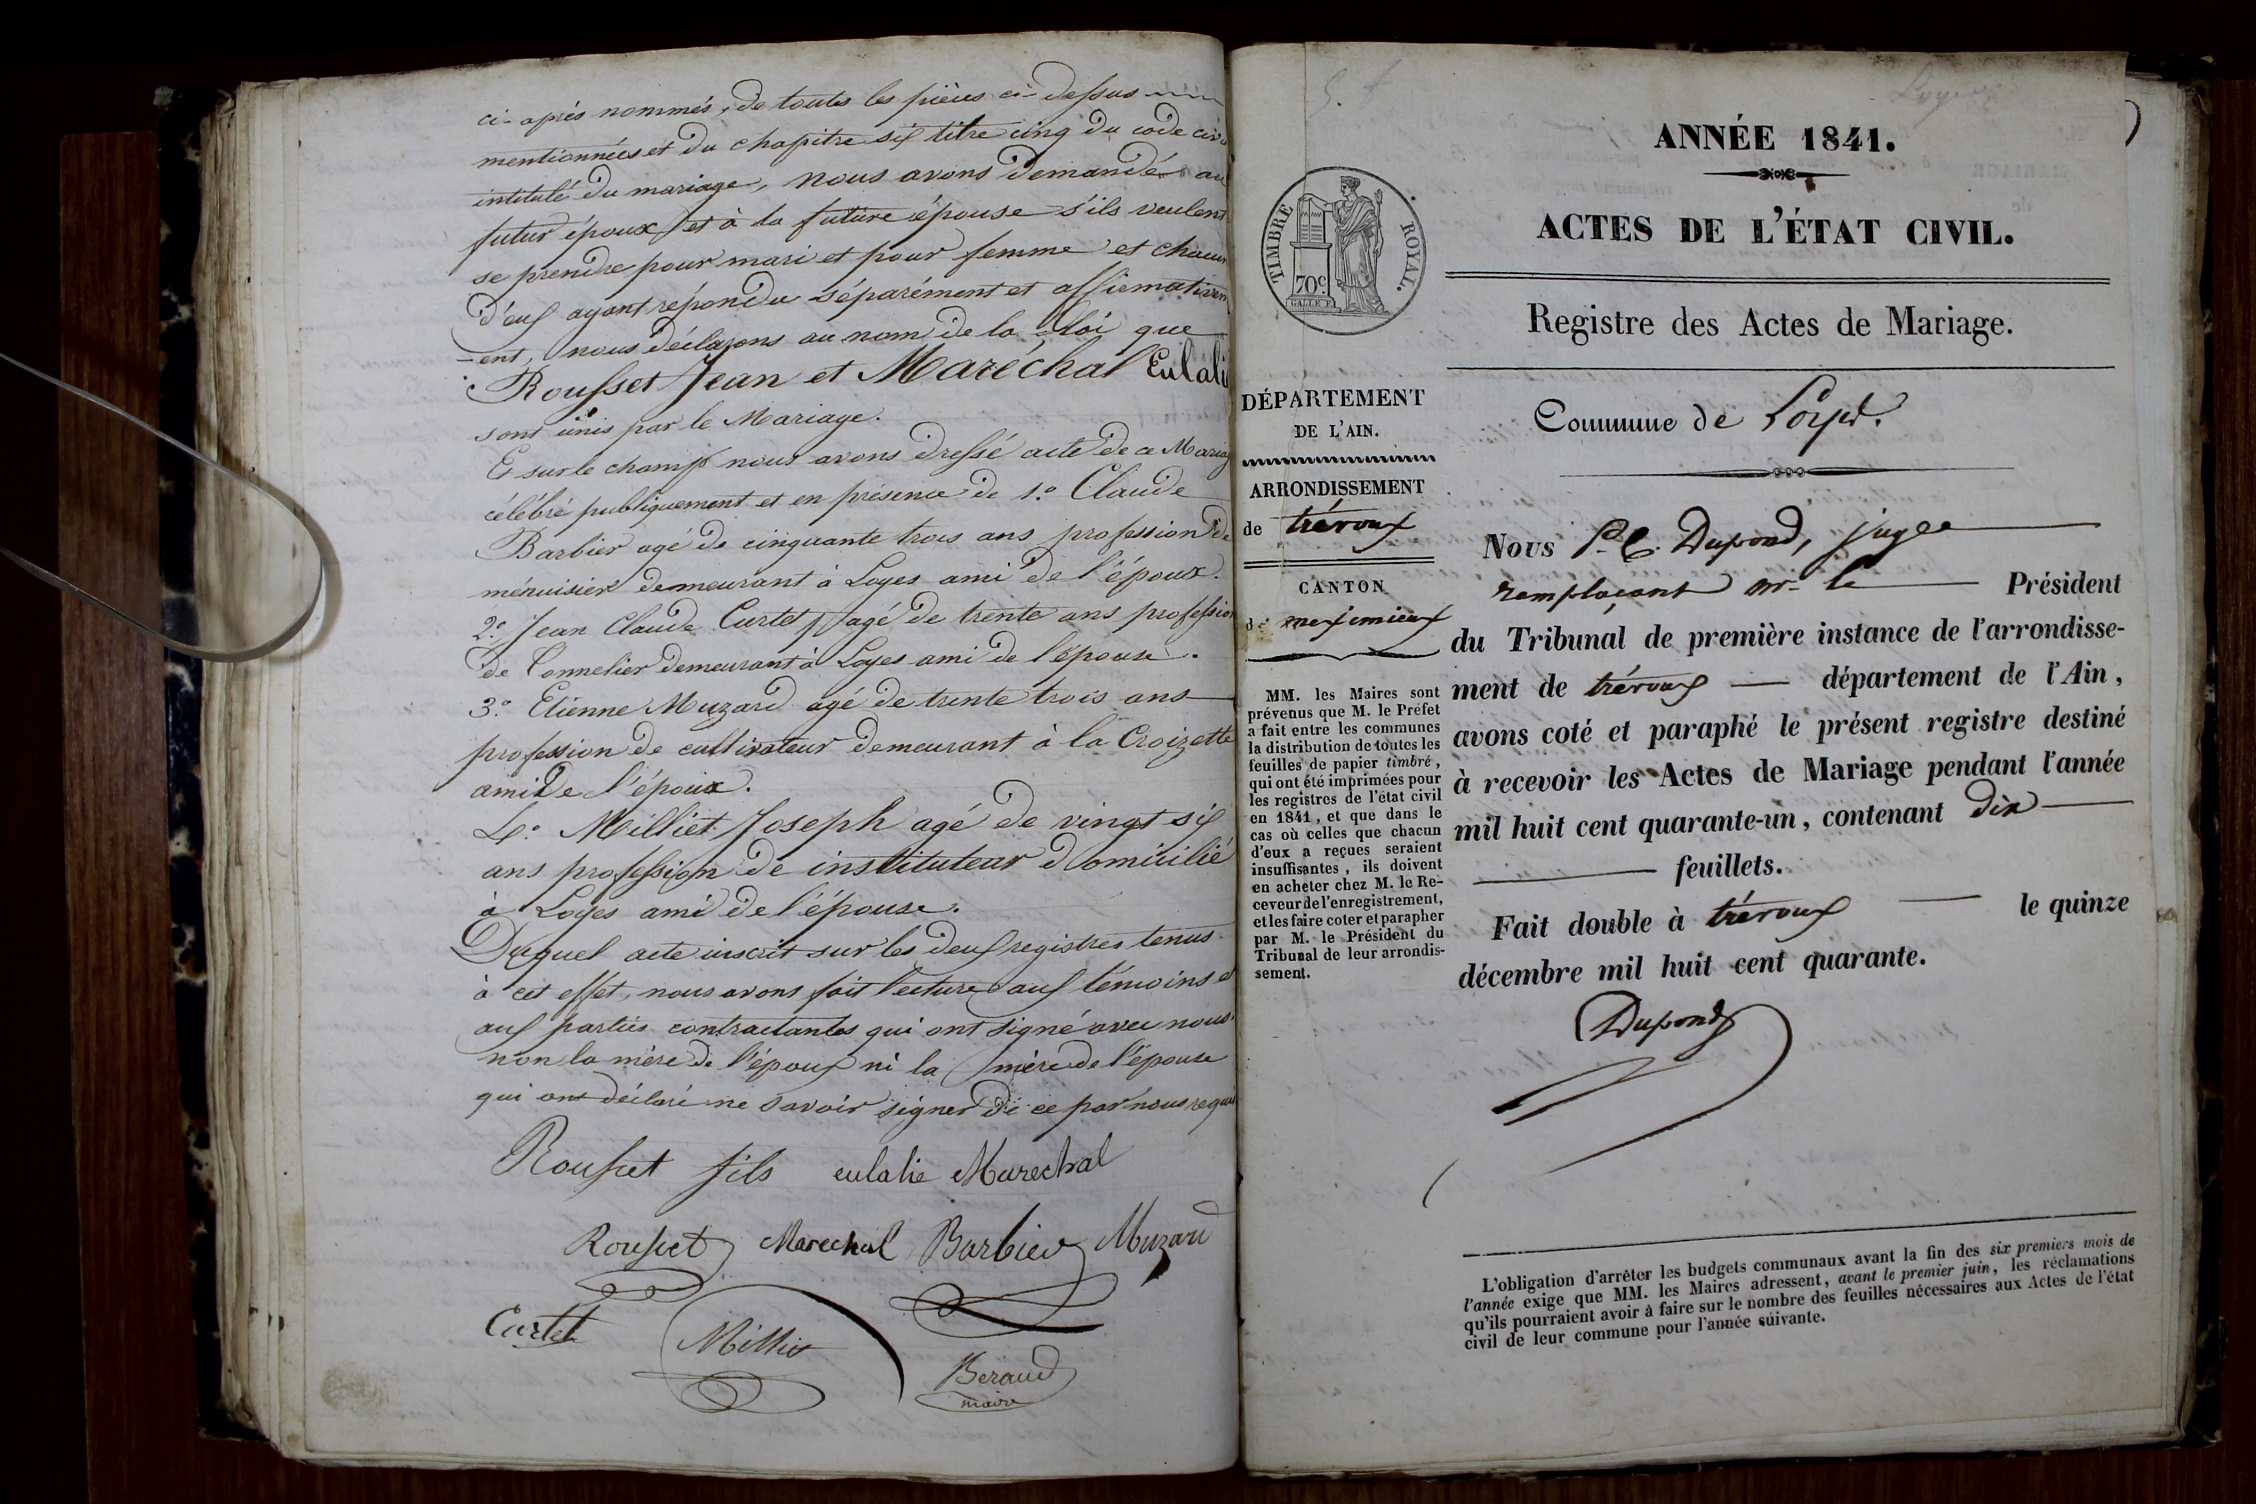 ci-après nommés, de toutes les pièces ci-dessus
mentionnées et du chapitre six titre cinq du code civ
intitulé du mariage, nous avons demandé au
futur époux et à la future épouse s'ils veulent
se prendre pour mari et pour femme et chacun
d'eux ayant répondu séparément et affirmativem
-ent, nous déclarons au nom de la loi que
Rousset Jean et Maréchal Eulali
sont unis par le Mariage.
Et sur le champ nous avons dressé acte de ce Mariag
célébré publiquement et en présence de 1.° Claude
Barbier agé de cinquante trois ans profession de
ménuisier demeurant à Loyes ami de l'époux.
2.° Jean Claude Curtet agé de trente ans profession
de Tonnelier demeurant à Loyes ami de l'épouse.
3.° Etienne Muzard agé de trente trois ans
profession de cultivateur demeurant à la Croizette
ami de l'époux.
4.° Milliet Joseph agé de vingt six
ans profession de instituteur domicilié
à Loyes ami de l'épouse.
Duquel acte inscrit sur les deux registres tenus
à cet effet, nous avons fait lecture aux témoins et
aux parties contractantes qui ont signé avec nous.
non la mère de l'époux ni la mère de l'épouse
qui ont déclaré ne savoir signer de ce par nous requis
Rousset fils eulalie Marechal
Rousset Marechal Barbier Muzard
Curtet Milliet
Beraud
maire
Loyes
ANNÉE 1841.
ACTES DE L'ÉTAT CIVIL.
Registre des Actes de Mariage.
Commune de Loyes.
TIMBRE ROYAL.
70c
DÉPARTEMENT
DE L'AIN.
ARRONDISSEMENT
de trévoux
CANTON
de meximieux
MM. les Maires sont
prévenus que M. le Préfet
a fait entre les communes
la distribution de toutes les
feuilles de papier timbré,
qui ont été imprimées pour
les registres de l'état civil
en 1841, et que dans le
cas où celles que chacun
d'eux a reçues seraient
insuffisantes, ils doivent
en acheter chez M. le Re-
ceveur de l'enregistrement,
et les faire coter et parapher
par M. le Président du
Tribunal de leur arrondis-
sement.
Nous P. C. Dupond, juge
remplaçant mr. le Président
du Tribunal de première instance de l'arrondisse-
ment de trévoux département de l'Ain,
avons coté et paraphé le présent registre destiné
à recevoir les Actes de Mariage pendant l'année
mil huit cent quarante-un, contenant dix
feuillets.
Fait double à trévoux le quinze
décembre mil huit cent quarante.
Dupond
L'obligation d'arrêter les budgets communaux avant la fin des six premiers mois de
l'année exige que MM. les Maires adressent, avant le premier juin, les réclamations
qu'ils pourraient avoir à faire sur le nombre des feuilles nécessaires aux Actes de l'état
civil de leur commune pour l'année suivante.